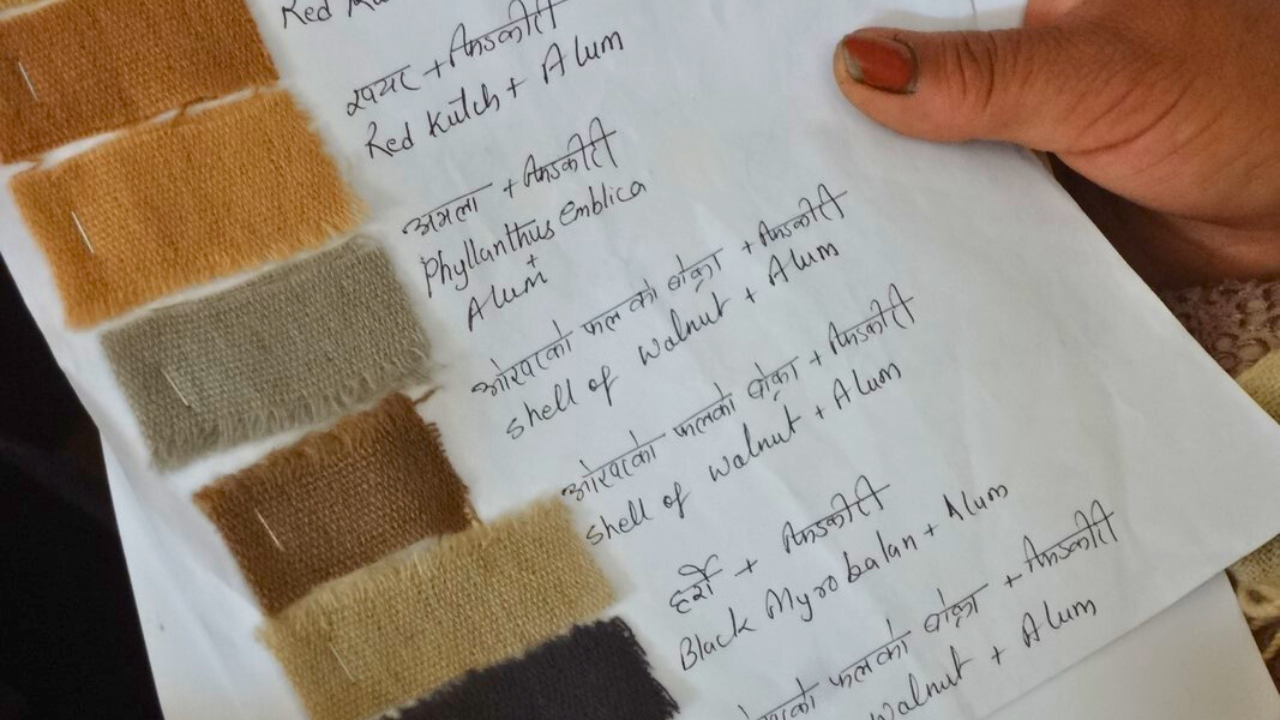 Red
खयर + फिटकीरी
Red Kutch + Alum
अमला + फिटकीरी
Phyllanthus emblica
+
Alum
ओखरको फल को बोक्रा + फिटकीरी
shell of walnut + Alum
ओखरको फलको बोक्रा + फिटकीरी
shell of walnut + Alum
हर्रो + फिटकीरी
Black Myrobalan + Alum
फलको बोक्रा + फिटकीरी
walnut + Alum